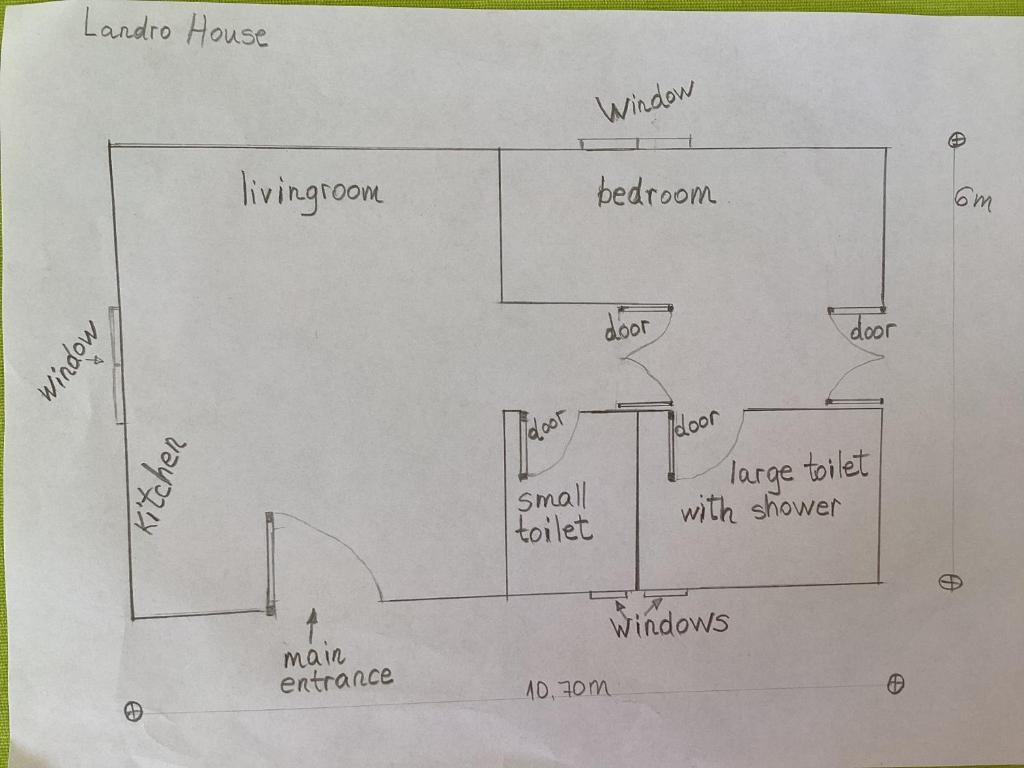 Landro House
Window
livingroom
bedroom
6m
door
door
Window
door
door
Kitchen
large toilet
with shower
small
toilet
Windows
main
entrance
10,70m